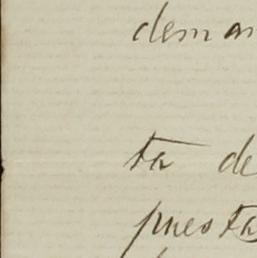 deman
ta de
puesta